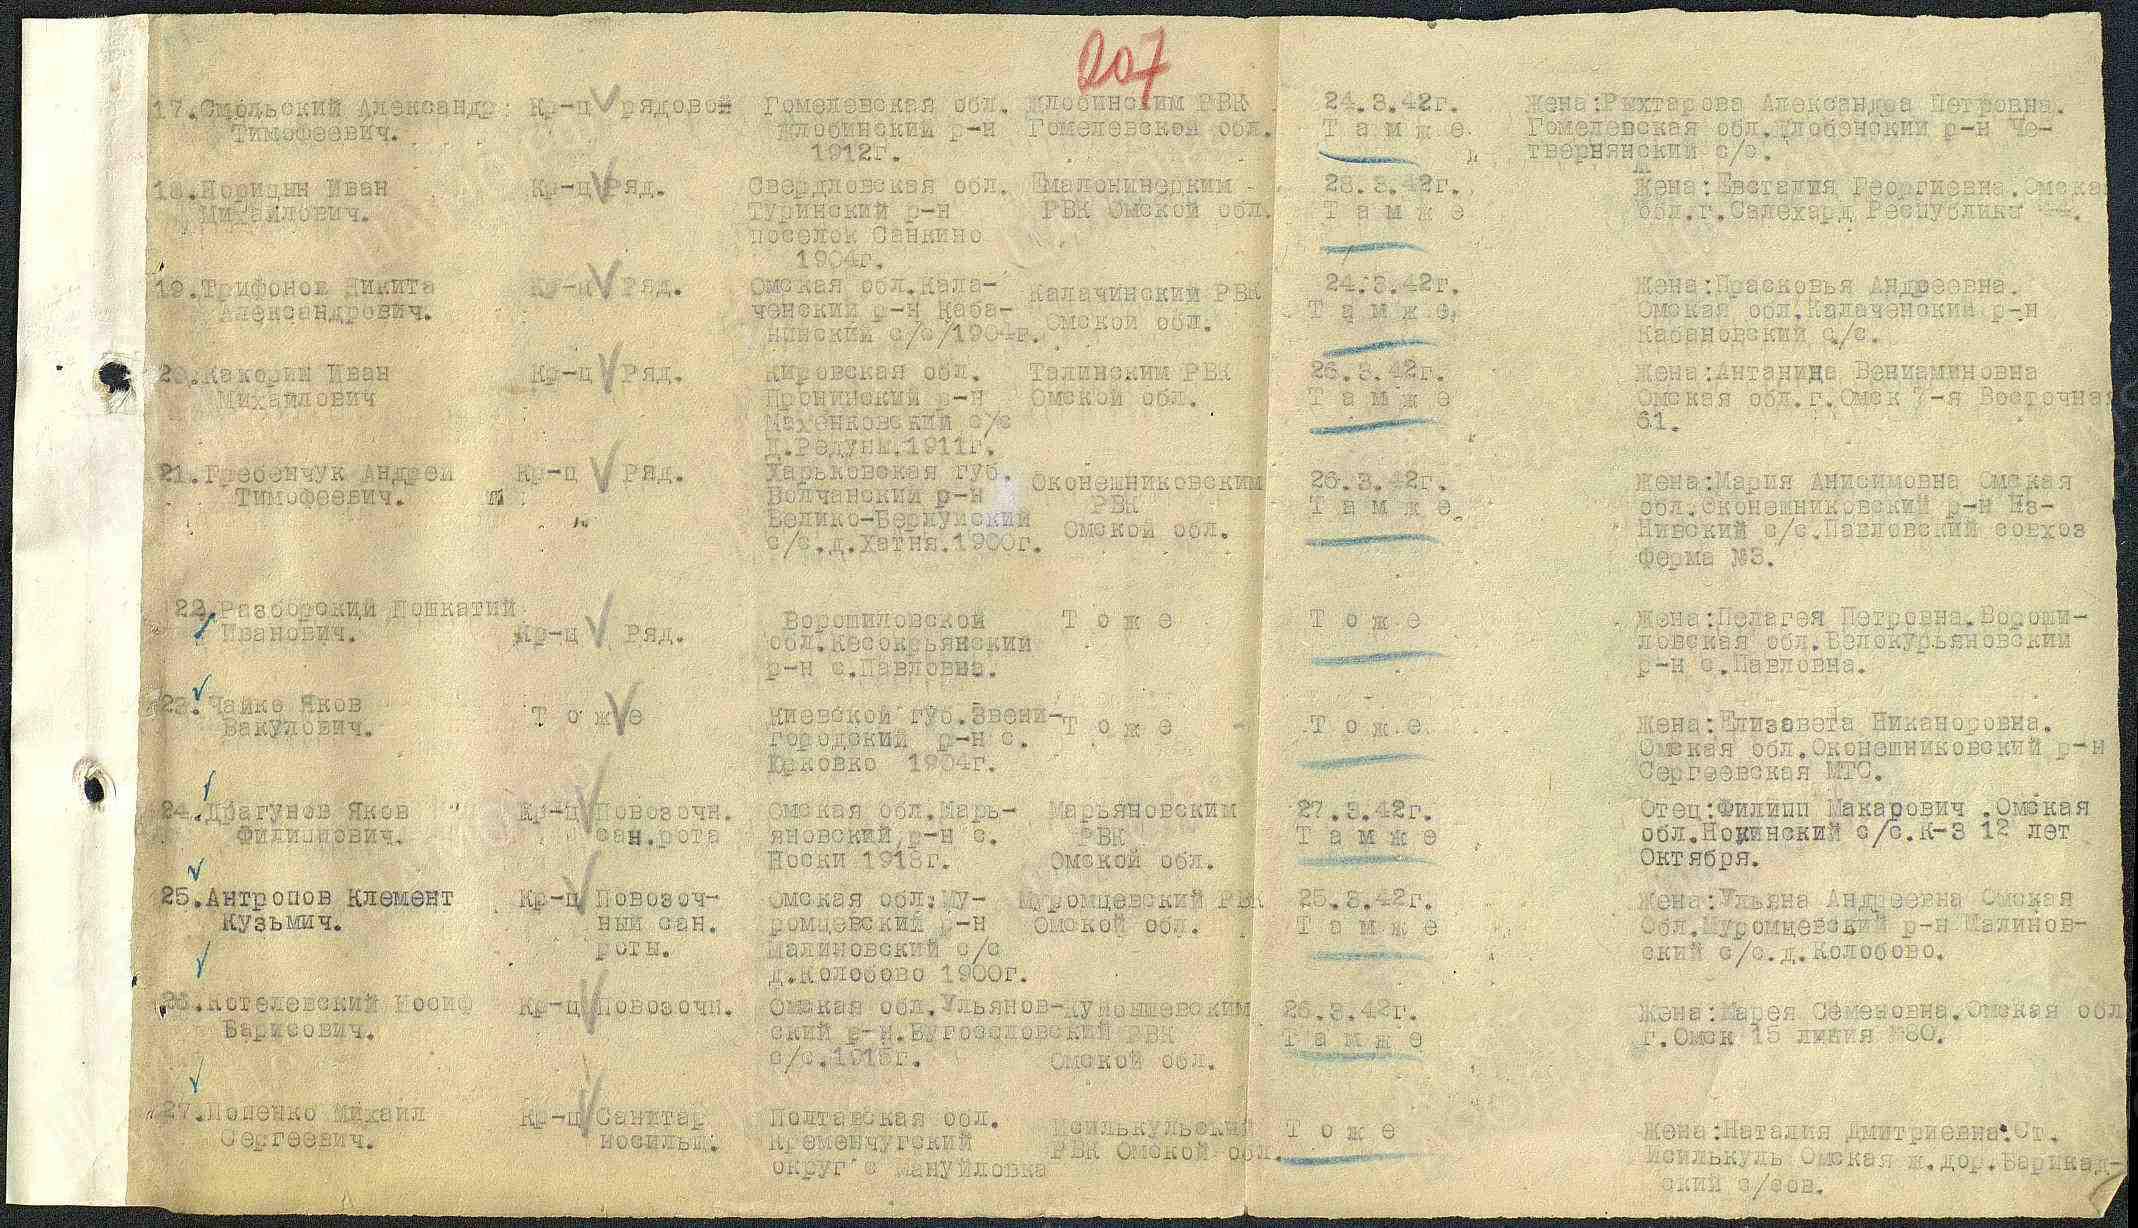 207
17.Смольский Александр Кр-ц рядовой Гомелевская обл. Жлобинским РВК 24.3.42г. Жена:Рыхтарова Александра Петровна.
Тимофеевич. Жлобинский р-н Гомелевской обл. Т а м ж е Гомелевская обл.Жлобенский р-н Че-
1912г. твернянский с/с.
18.Норицын Иван Кр-ц Ряд. Свердловская обл. 28.3.42г. Жена:Евсталия Георгиевна.Омска
Михайлович. Туринский р-н РВК Омской обл. Т а м ж е обл.г.Салехард Республики 44.
поселок Санкино
1904г.
19.Трифонов Никита Кр-ц Ряд. Омская обл.Кала- Калачинский РВК 24.3.42г. Жена:Прасковья Андреевна.
Александрович. ченский р-н Каба- Омской обл. Т а м ж е. Омская обл.Калаченский р-н
нинский с/с/1904г. Кабановский с/с.
20.Какорин Иван Кр-ц Ряд. Кировская обл. Талинским РВК 26.3.42г. Жена:Антанина Вениаминовна
Михайлович Пронинский р-н Омской обл. Т а м ж е Омская обл.г.Омск 7-я Восточна
Махенковский с/с 61.
д.Редуны.1911г.
21.Гребенчук Андрей Кр-ц Ряд. Харьковская губ. Оконешниковским 26.3.42г. Жена:Мария Анисимовна Омская
Тимофеевич. Волчанский р-н РВК Т а м ж е обл.Оконешниковский р-н Из-
Велико-Бернумский Омской обл. Нивский с/с.Павловский совхоз
с/с.д.Хатня.1900г. ферма №3.
22.Разборский Пошкатий Ворошиловской Т о ж е Т о ж е Жена:Пелагея Петровна.Вороши-
Иванович. Кр-ц Ряд. обл.Кесокрьянский ловская обл.Белокурьяновский
р-н с.Павловна. р-н с.Павловна.
23.Чайко Яков Т о ж е Киевской губ.Звени- Т о ж е - Т о ж е Жена:Елизавета Никаноровна.
Вакулович. городский р-н с. Омская обл.Оконешниковский р-н
Юрковко 1904г. Сергеевская МТС.
24.Драгунов Яков Кр-ц Повозочн. Омская обл.Марь- Марьяновским 27.3.42г. Отец:Филипп Макарович .Омская
Филиппович. сан.рота яновский р-н с. РВК Т а м ж е обл.Нокинский с/с.К-З 12 лет
Носки 1918г. Омской обл. Октября.
25.Антропов Клемент Кр-ц Повозоч- Омская обл.Му- Муромцевский РВК 25.3.42г. Жена:Ульяна Андреевна Омская
Кузьмич. ный сан. ромцевский р-н Омской обл. Т а м ж е Обл.Муромцевский р-н Малинов-
роты. Малиновский с/с ский с/с.д.Колобово.
д.Колобово 1900г.
26.Котелевский Иосиф Кр-ц Повозочн. Омская обл.Ульянов- Куйбышевским 26.3.42г. Жена:Марея Семеновна.Омская обл
Барисович. ский р-н.Бугозсловский РВК Т а м ж е г.Омск 15 линия №80.
с/с.1915г. Омской обл.
27.Попенко Михаил Кр-ц Санитар Полтавская обл. Исилькульский Т о ж е Жена:Наталия Дмитриевна.Ст.
Сергеевич. носильщ. Кременчугский РВК Омской обл. Исилькуль Омская ж.дор.Барикад-
округ с Мануйловка ский с/сов.